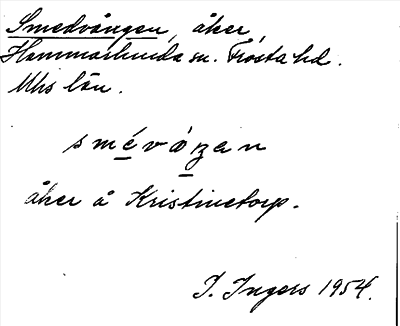 Smedvången, åker,
Hammarlunda sn. Frosta hd.
Mhs län.
smévåŋan
åker å Kristinetorp.
I. Ingers 1954.